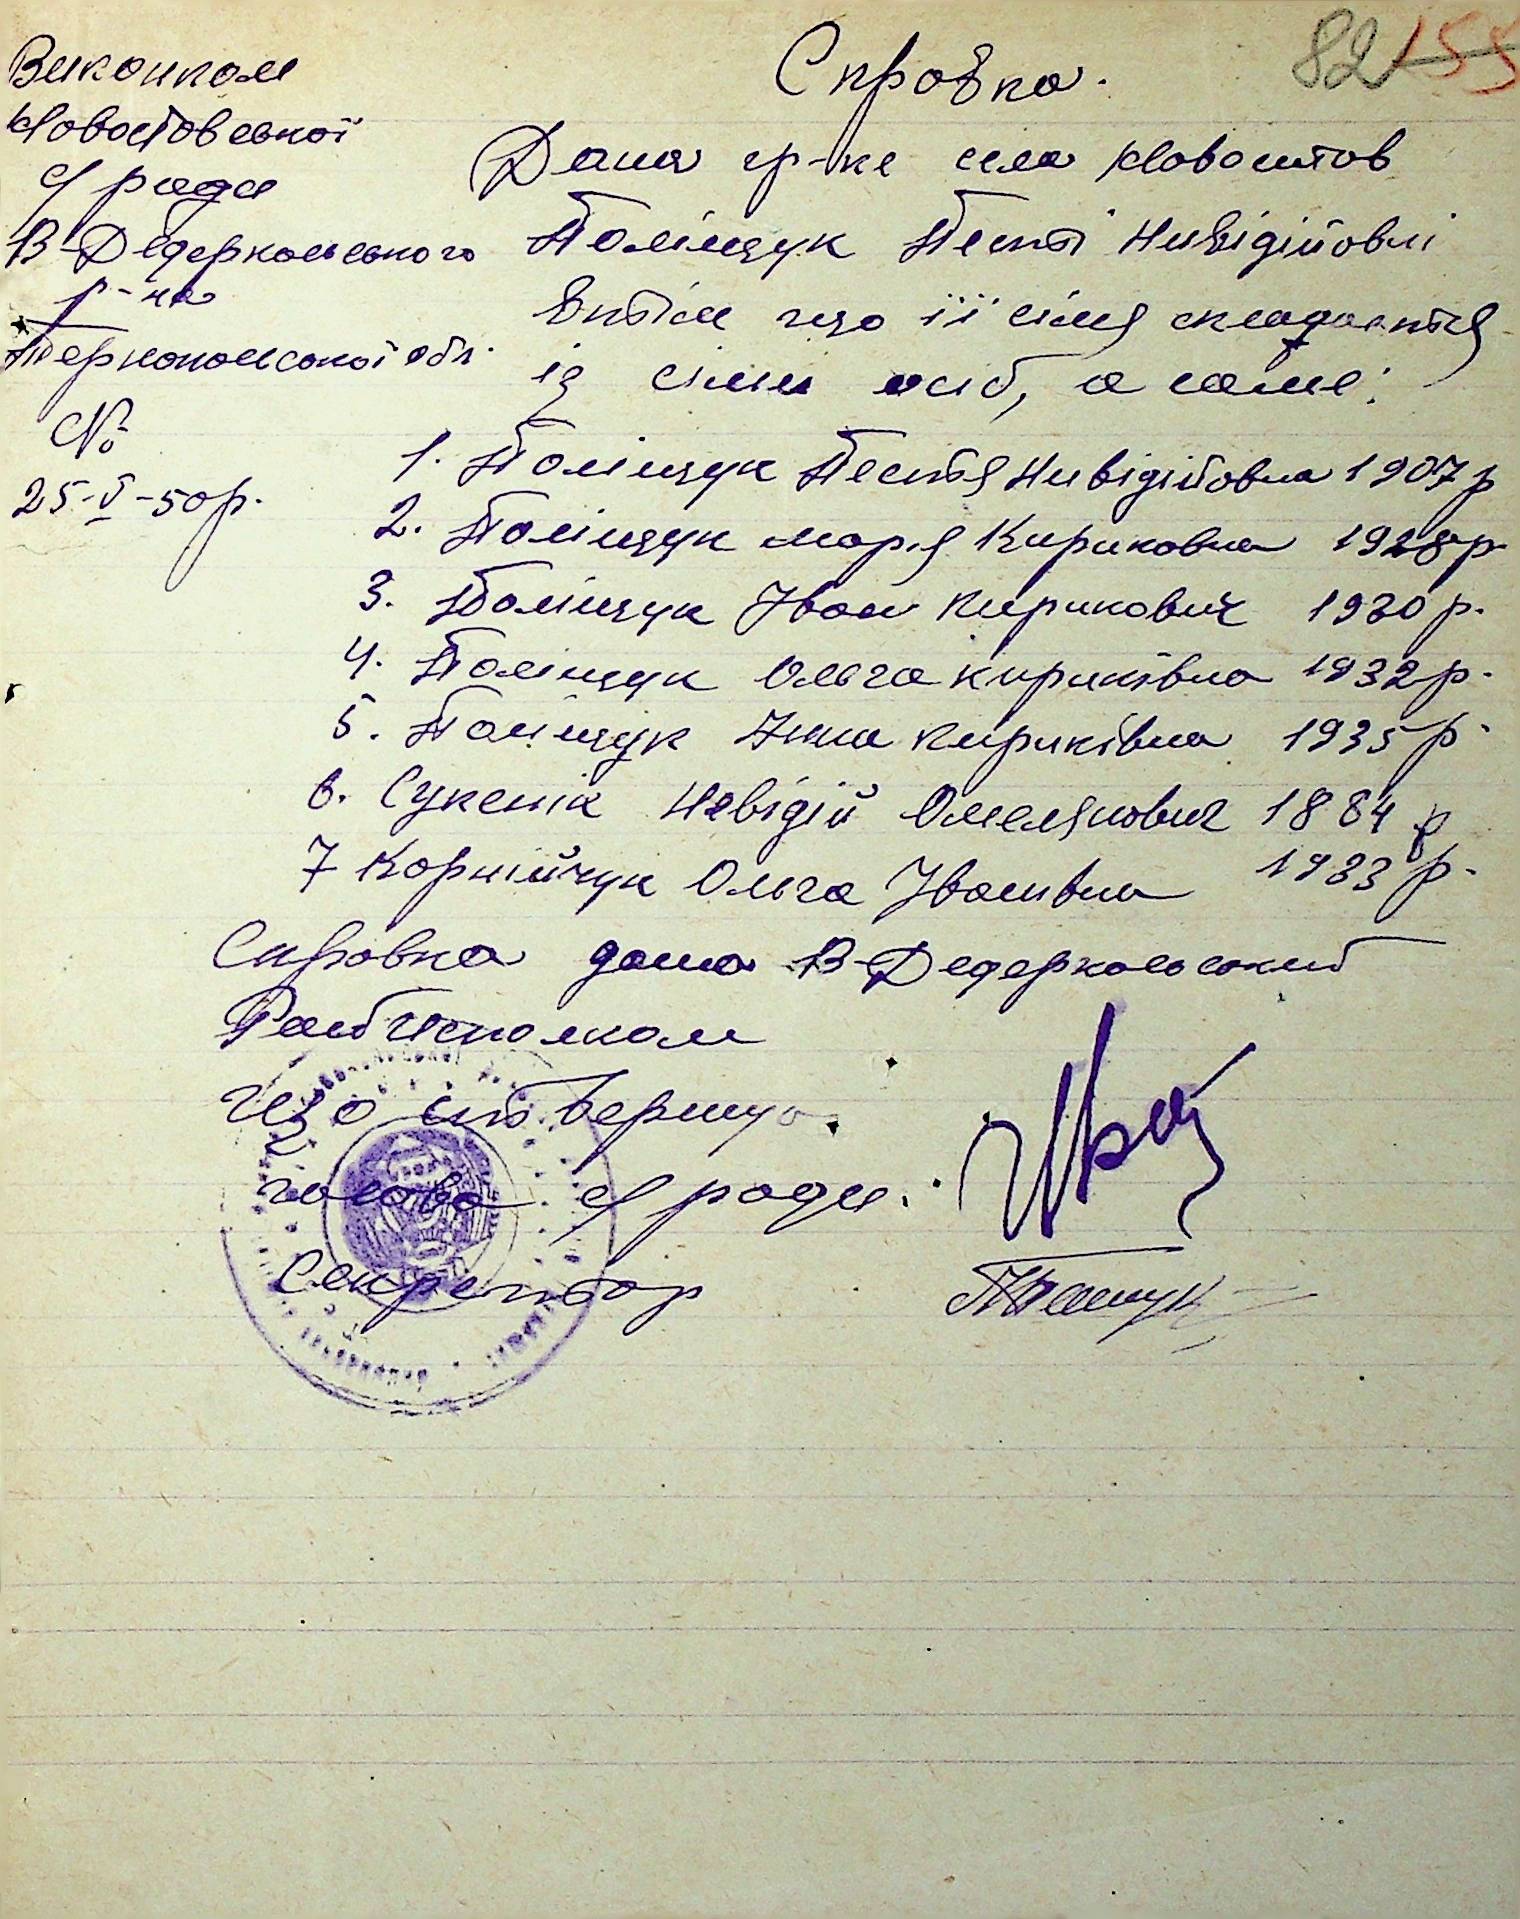 82 155
Виконком
Новоставської
с/ради
В-Дедеркальського
р-на
Тернопольської обл.
№
25-V-50р.
Справка.
Дана гр-ке села Новостав
Поліщук Песті Нивідійовні
втім що її сімя складається
із сіми осіб, а саме:
1. Поліщук Пестя Нивідійовна 1907р
2. Поліщук Марія Кириковна 1928р
3. Поліщук Іван Кирикович 1930р.
4. Поліщук Ольга Кириківна 1932р.
5. Поліщук Інна Кириківна 1935р.
6. Сукенік Невідій Омелянович 1884р
7 Корнійчук Ольга Іванівна 1933р.
Справка дана В-Дедеркальський
Райисполком
що ствержую
голова с/ради.
Секретар